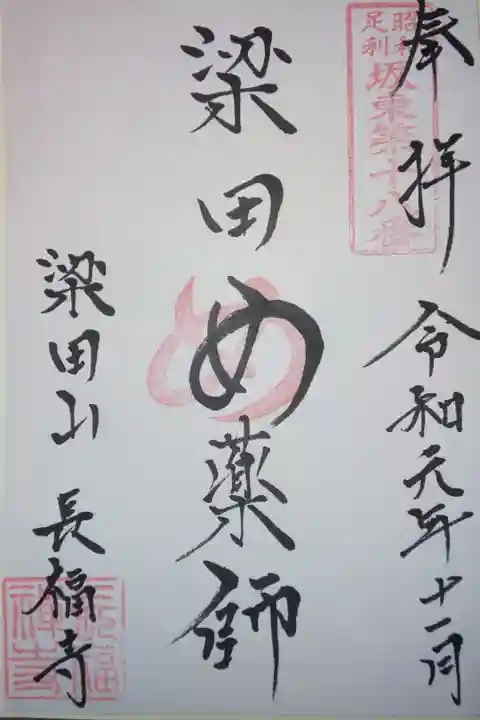 奉拝 令和元年十一月
昭和
足利
坂東第十八番
梁田め薬師
め
梁田山 長福寺
長福
禅寺